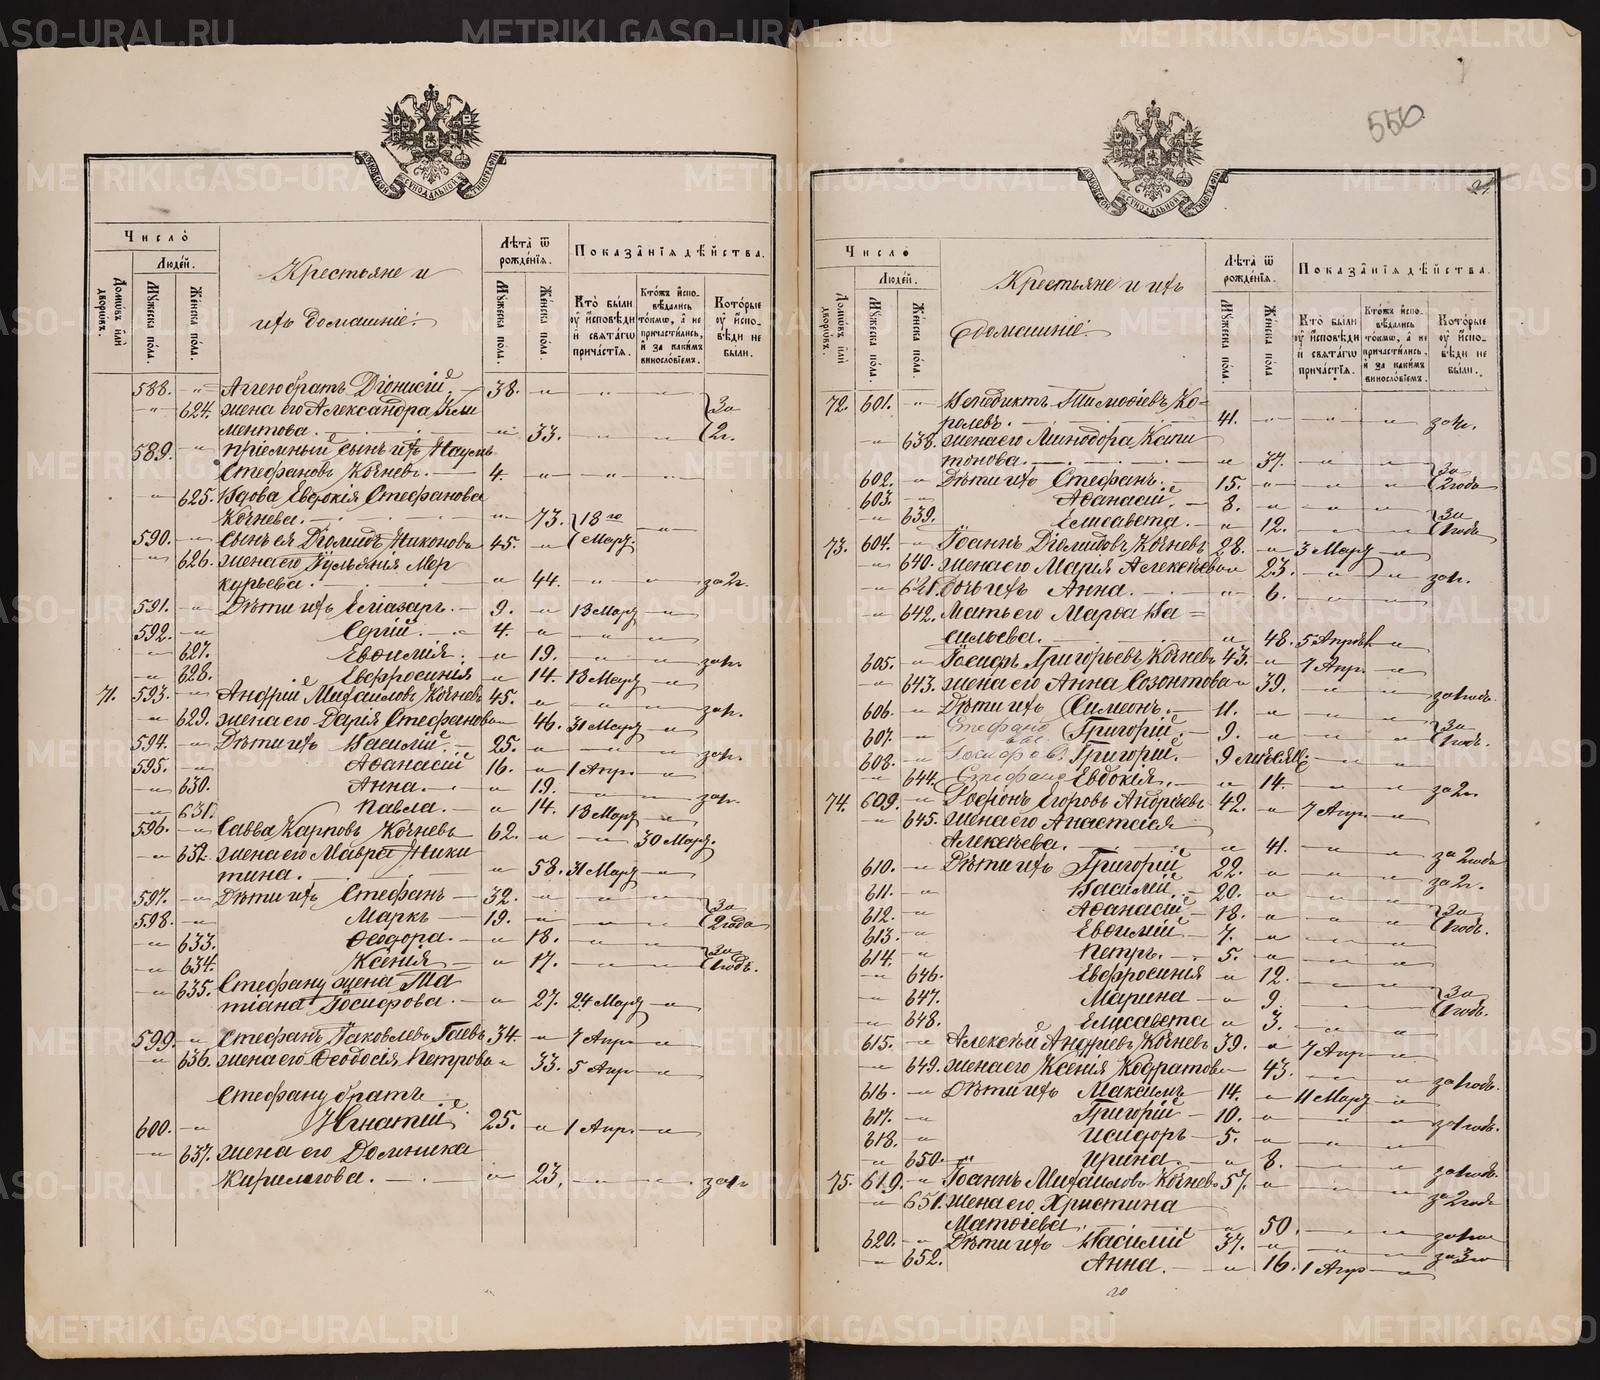 550
Число̀
Людéй.
Домѡ́въ и҆лѝ дворѡ́въ.
Мꙋ́жеска по́ла.
Же́нска по́ла.
Крестьяне и
ихъ домашніе:
Лѣ́та ѿ рожде́нїѧ.
Мꙋ́жеска по́ла.
Же́нска по́ла.
Показа̑нїѧ дѣ́йства.
Кто̀ бы́ли ᲂу҆ и҆сповѣди и҆ свѧта́гѡ причастїѧ.
Кто́жъ и҆спо-вѣдались то́кмѡ, а҆ не причасти́лись, и҆ за каки́мъ винословіемъ.
Кото́рые ᲂу҆ и҆спо-вѣди не бы́ли.
588. Аггею братъ Діонисій 38.
624. жена его Александра Кли за
ментова. 33. 2г.
589. пріемный сынъ ихъ Наумъ
Стефановъ Кочневъ. 4.
625. Вдова Евдокія Стефанова
Кочнева. 73. 18го
590. Сынъ ея Діомидъ Никоновъ 45. Мару.
626. жена его Іульянія Мер
курьева. 44. за 2г.
591. Дѣти ихъ Еліазаръ. 9. 13 Мару
592. Сергій. 4.
627. Евѳимія. 19. за 1г.
628. Евфросинія 14. 13 Мару
71. 593. Андрей Михаиловъ Кочневъ 45. за 1г.
629. жена его Дарія Стефанова 46. 31 Мару
594. Дѣти ихъ Василій 25. за 1г.
595. Аѳанасій 16. 1 Апр.
630. Анна. 19. за 1г.
631. Павла. 14. 13 Мару
596. Савва Карповъ Кочневъ 62. 30 Мару.
632. жена его Мавра Ники
тина. 58. 31 Мару
597. Дѣти ихъ Стефанъ 32. за
598. Маркъ 19. 2 года
633. Ѳеодора. 18. за
634. Ксенія 17. 1 годъ.
635. Стефану жена Та
тіана Іосифова. 27. 24 Мару
599. Стефанъ Іаковлевъ Гаевъ 34. 7 Апр
636. жена его Ѳеодосія Петрова 33. 5 Апр
Стефану братъ
600. Игнатій 25. 1 Апр.
637. жена его Домника
Кирилова. 23. за 1г
Число̀
Людéй.
Домѡ́въ и҆лѝ дворѡ́въ.
Мꙋ́жеска по́ла.
Же́нска по́ла.
Крестьяне и ихъ
домашніе:
Лѣ́та ѿ рожде́нїѧ.
Мꙋ́жеска по́ла.
Же́нска по́ла
Показа̑нїѧ дѣ́йства.
Кто̀ бы́ли ᲂу҆ и҆сповѣди и҆ свѧта́гѡ причастїѧ.
Кто́жъ и҆спо-вѣдались то́кмѡ, а҆ не причасти́лись, и҆ за каки́мъ винословіемъ.
Кото́рые ᲂу҆ и҆спо-вѣди не бы́ли.
72. 601. Венедиктъ Тимоѳіевъ Ко-
ролевъ. 41. за 1г.
638. жена его Минодора Капи
тонова. 37. за
602. Дѣти ихъ Стефанъ. 15. 2 года
603. Аѳанасій. 8.
639. Елисавета. 12. за 1 годъ
73. 604. Іоаннъ Діомидовъ Кочневъ 28. 3 Мару
640. жена его Марія Алексѣева 23. за 1г.
641. Дочь ихъ Анна. 6.
642. Мать его Марѳа Ва=
сильева. 48. 5 Апрѣл
605. Іосифъ Григорьевъ Кочневъ 43. 7 Апр.
643. жена его Анна Созонтова 39. за 1 годъ.
606. Дѣти ихъ Симеонъ. 11. за
607. Григорій. 9. 1 годъ.
608. Григорій. 9 мѣсяц:
644. Евдокія. 14. за 2г.
74. 609. Родіонъ Егоровъ Андреевъ 42. 7 Апр
645. жена его Анастасія
Алексѣева. 41. за 2 года
610. Дѣти ихъ Григорій 22. за 2г.
611. Василій. 20.
612. Аѳанасій 18. за
613. Евѳимій 7. 1 годъ.
614. Петръ. 5.
646. Евфросинія 12.
647. Марина 9. за
648. Елисавета 3. 1 годъ.
615. Алексѣй Андреевъ Кочневъ 39. 7 Апр
649. жена его Ксенія Кодратова 43. за 1 годъ.
616. Дѣти ихъ Максимъ 14. 11 Мару
617. Григорій 10. за 1 годъ.
618. Исидоръ 5.
650. Ирина. 8. за 1 годъ.
75. 619. Іоаннъ Михаиловъ Кочневъ 57. за 2 года
651. жена его Христина
Матѳіева 50. за 1 го
620. Дѣти ихъ Василій 37. за 3 го
652. Анна. 16. 1 Апр
METRIKI.GASO-URAL.RU